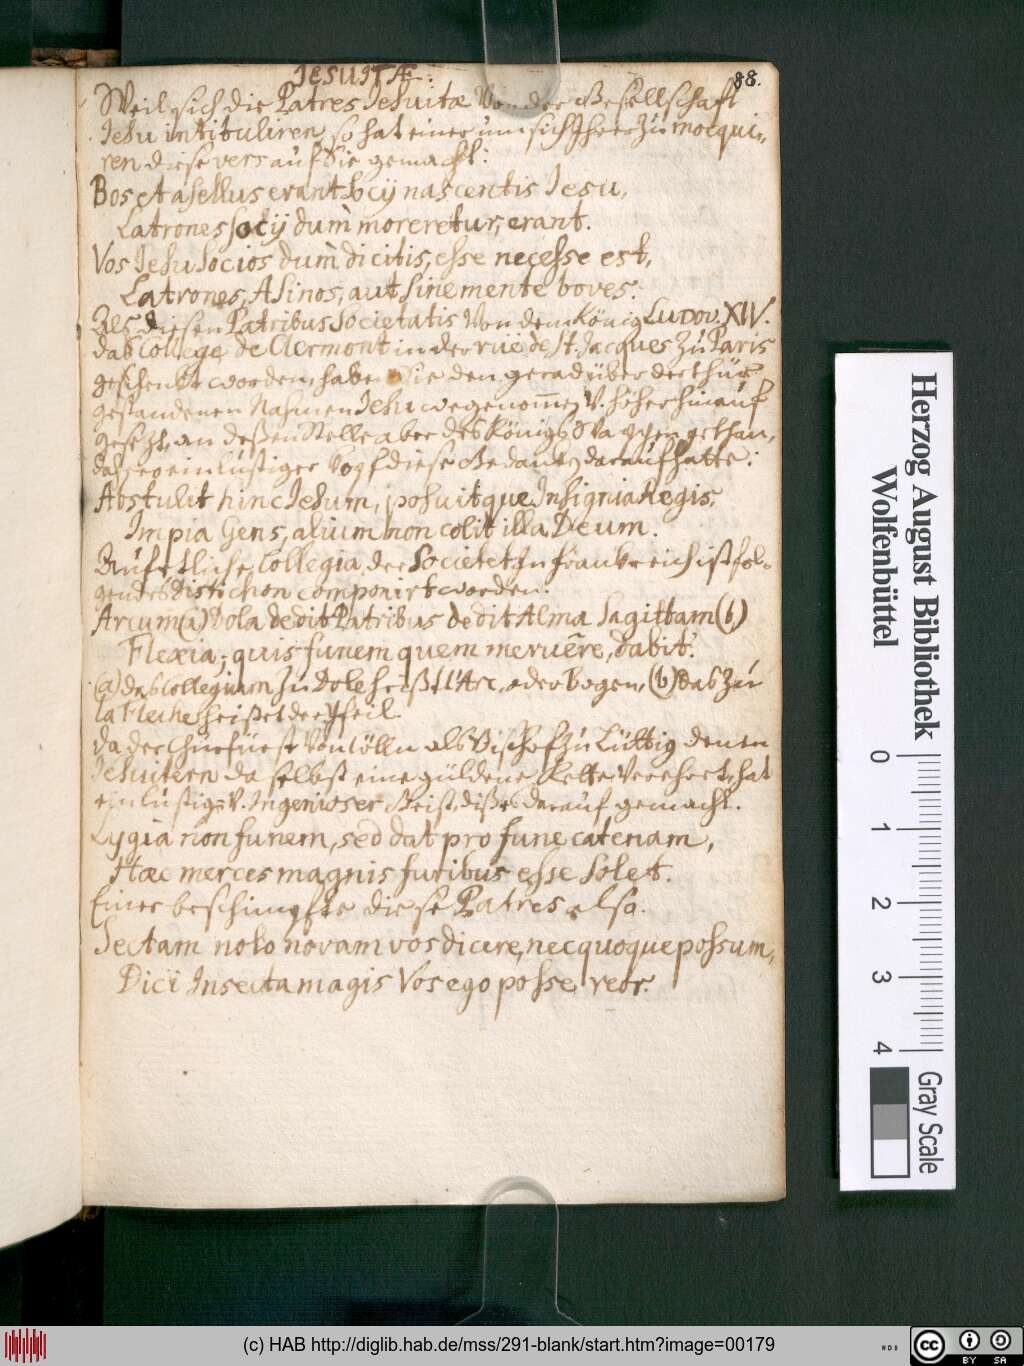 JESUITÆ.
88.
Weil sich die Patres Jesuitæ Von der Gesellschaft
Jesu intituliren, so hat einer um sich Ihrer zu mocqui-
ren diese vers auf Sie gemacht:
Bos et asellus erant Socij nascentis Jesu,
Latrones socij dum moreretur, erant.
Vos Jesu Socios dum dicitis, esse necesse est,
Latrones, Asinos, aut sine mente boves.
Als diesen Patribus Societatis Von dem König Ludov. XIV.
das College de Clermont in der rue de St. Jacques zu Paris
geschenkt worden, haben Sie den gerad über der thür
gestandenen Nahmen Jesu wegenommen v. höher hinauf
gesetzt, an deßen Stelle aber des Königs Wappen gethan,
daher ein lustiger Kopf diese Gedanken darauf hatte:
Abstulit hinc Jesum, posuitque Insignia Regis,
Impia Gens, alium non colit illa Deum.
Auf etliche Collegia der Societet In Franckreich ist fol-
gendes Distichon componirt worden:
Arcum (a) Dola dedit Patribus dedit Alma Sagittam (b)
Flexia; quis funem quem meruêre, dabit.
(a) das Collegium zu Dole heißt l'Arc, oder Bogen, (b) das zu
la Fleche heißet der Pfeil.
Da der Churfürst Von Cölln als Bischof zu Lüttig denen
Jesuitern daselbst eine güldene Kette Verehrt, hat
ein lustig. v. Ingenioser Geist dißes darauf gemacht.
Lygia non funem, sed dat pro fune catenam,
Hæc merces magnis furibus esse solet.
Einer beschimpfte diese Patres also.
Sectam nolo novam vos dicere, nec quoque possum,
Dici Insecta magis Vos ego posse, reor.
Herzog August Bibliothek
Wolfenbüttel
0 1 2 3 4
Gray Scale
(c) HAB http://diglib.hab.de/mss/291-blank/start.htm?image=00179
WDB
cc BY SA